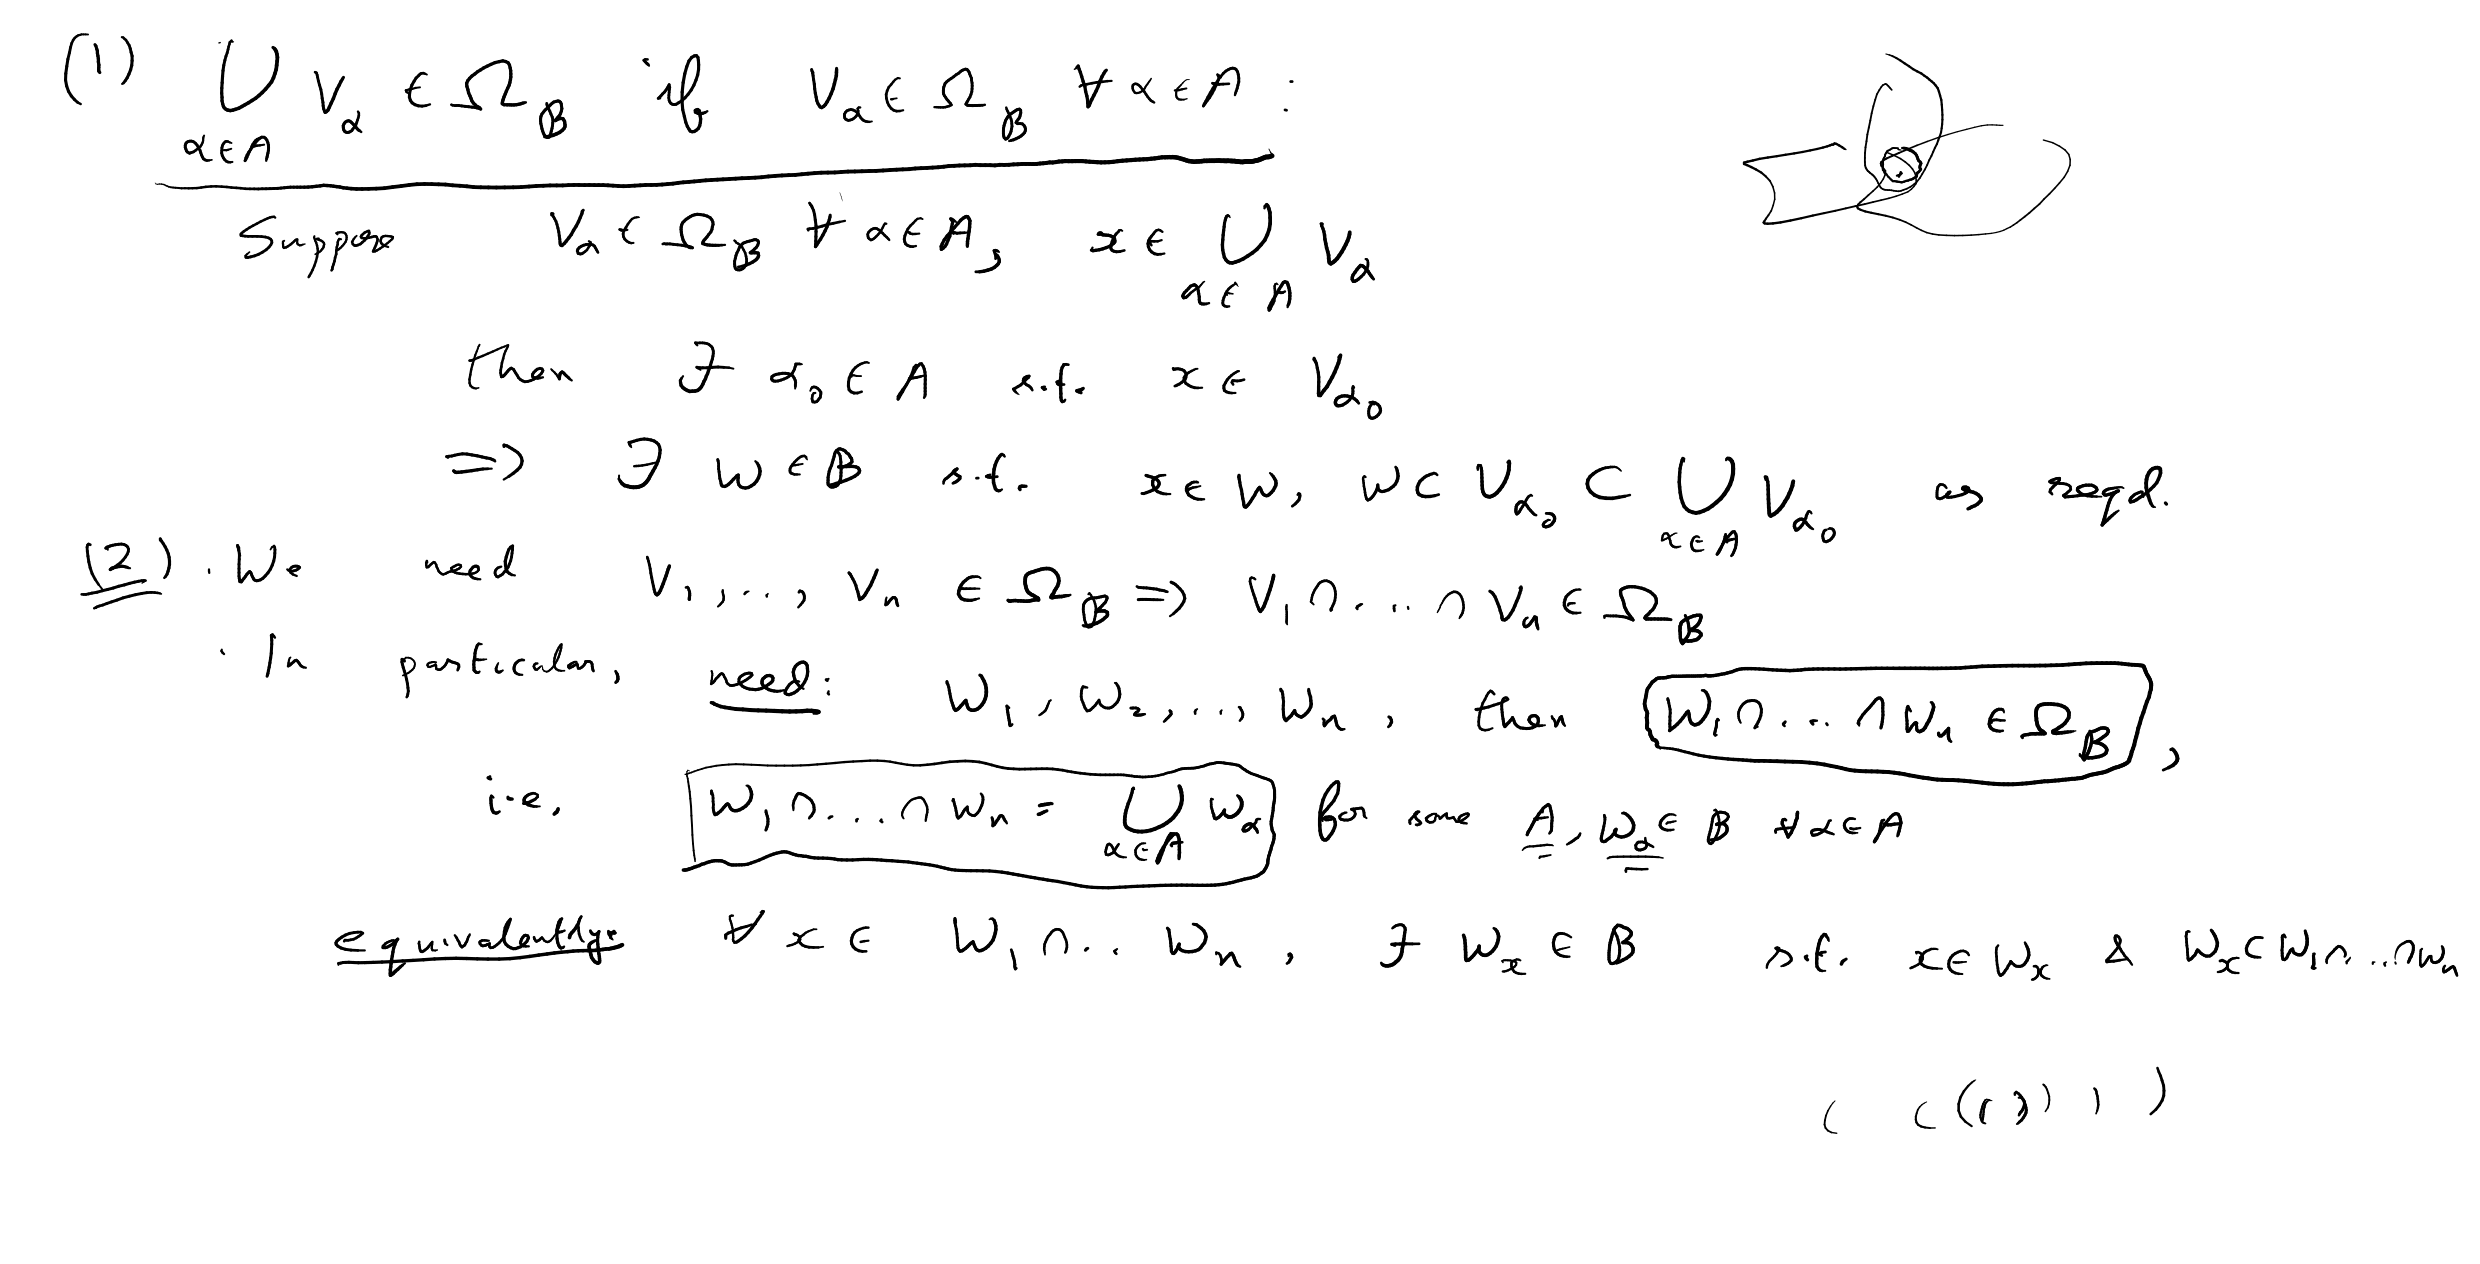 (1) ⋃_{α∈A} V_α ∈ Ω_𝔹 if V_α ∈ Ω_𝔹 ∀ α∈A :
Suppose V_α ∈ Ω_𝔹 ∀ α∈A, x ∈ ⋃_{α∈A} V_α
then ∃ α₀ ∈ A s.t. x ∈ V_{α₀}
=> ∃ W ∈ 𝔹 s.t. x ∈ W, W ⊂ V_{α₀} ⊂ ⋃_{α∈A} V_{α₀} as reqd.
(2) . We need V₁,..., V_n ∈ Ω_𝔹 => V₁ ∩ .... ∩ V_n ∈ Ω_𝔹
· In particular, need: W₁, W₂, ..., W_n, then W₁ ∩ ... ∩ W_n ∈ Ω_𝔹,
i.e. W₁ ∩ ... ∩ W_n = ⋃_{α∈A} W_α for some A, W_α ∈ 𝔹 ∀ α∈A
equivalently: ∀ x ∈ W₁ ∩ .. W_n, ∃ W_x ∈ 𝔹 s.t. x ∈ W_x & W_x ⊂ W₁ ∩ ... ∩ W_n